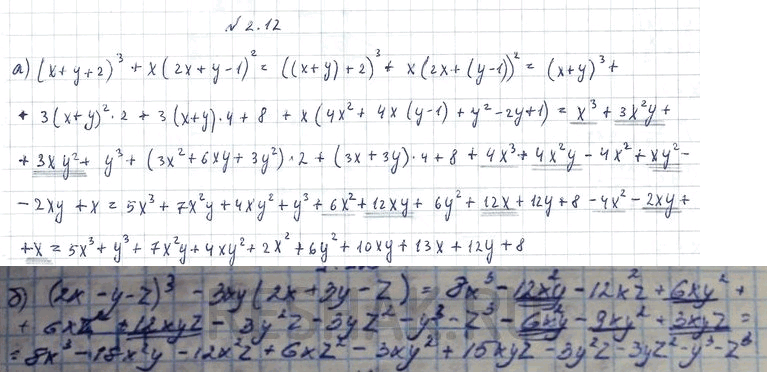 № 2.12
а) (x+y+2)³ + x(2x+y-1)² = ((x+y)+2)³ + x(2x+(y-1))² = (x+y)³ +
+ 3(x+y)²·2 + 3(x+y)·4 + 8 + x(4x² + 4x(y-1) + y² - 2y+1) = x³ + 3x²y +
+ 3xy² + y³ + (3x² + 6xy + 3y²)·2 + (3x + 3y)·4 + 8 + 4x³ + 4x²y - 4x² + xy² -
- 2xy + x = 5x³ + 7x²y + 4xy² + y³ + 6x² + 12xy + 6y² + 12x + 12y + 8 - 4x² - 2xy +
+ x = 5x³ + y³ + 7x²y + 4xy² + 2x² + 6y² + 10xy + 13x + 12y + 8
б) (2x - y - z)³ - 3xy(2x + 3y - z) = 8x³ - 12x²y - 12x²z + 6xy² +
+ 6xz² + 12xyz - 3y²z - 3yz² - y³ - z³ - 6x²y - 9xy² + 3xyz =
= 8x³ - 18x²y - 12x²z + 6xz² - 3xy² + 15xyz - 3y²z - 3yz² - y³ - z³